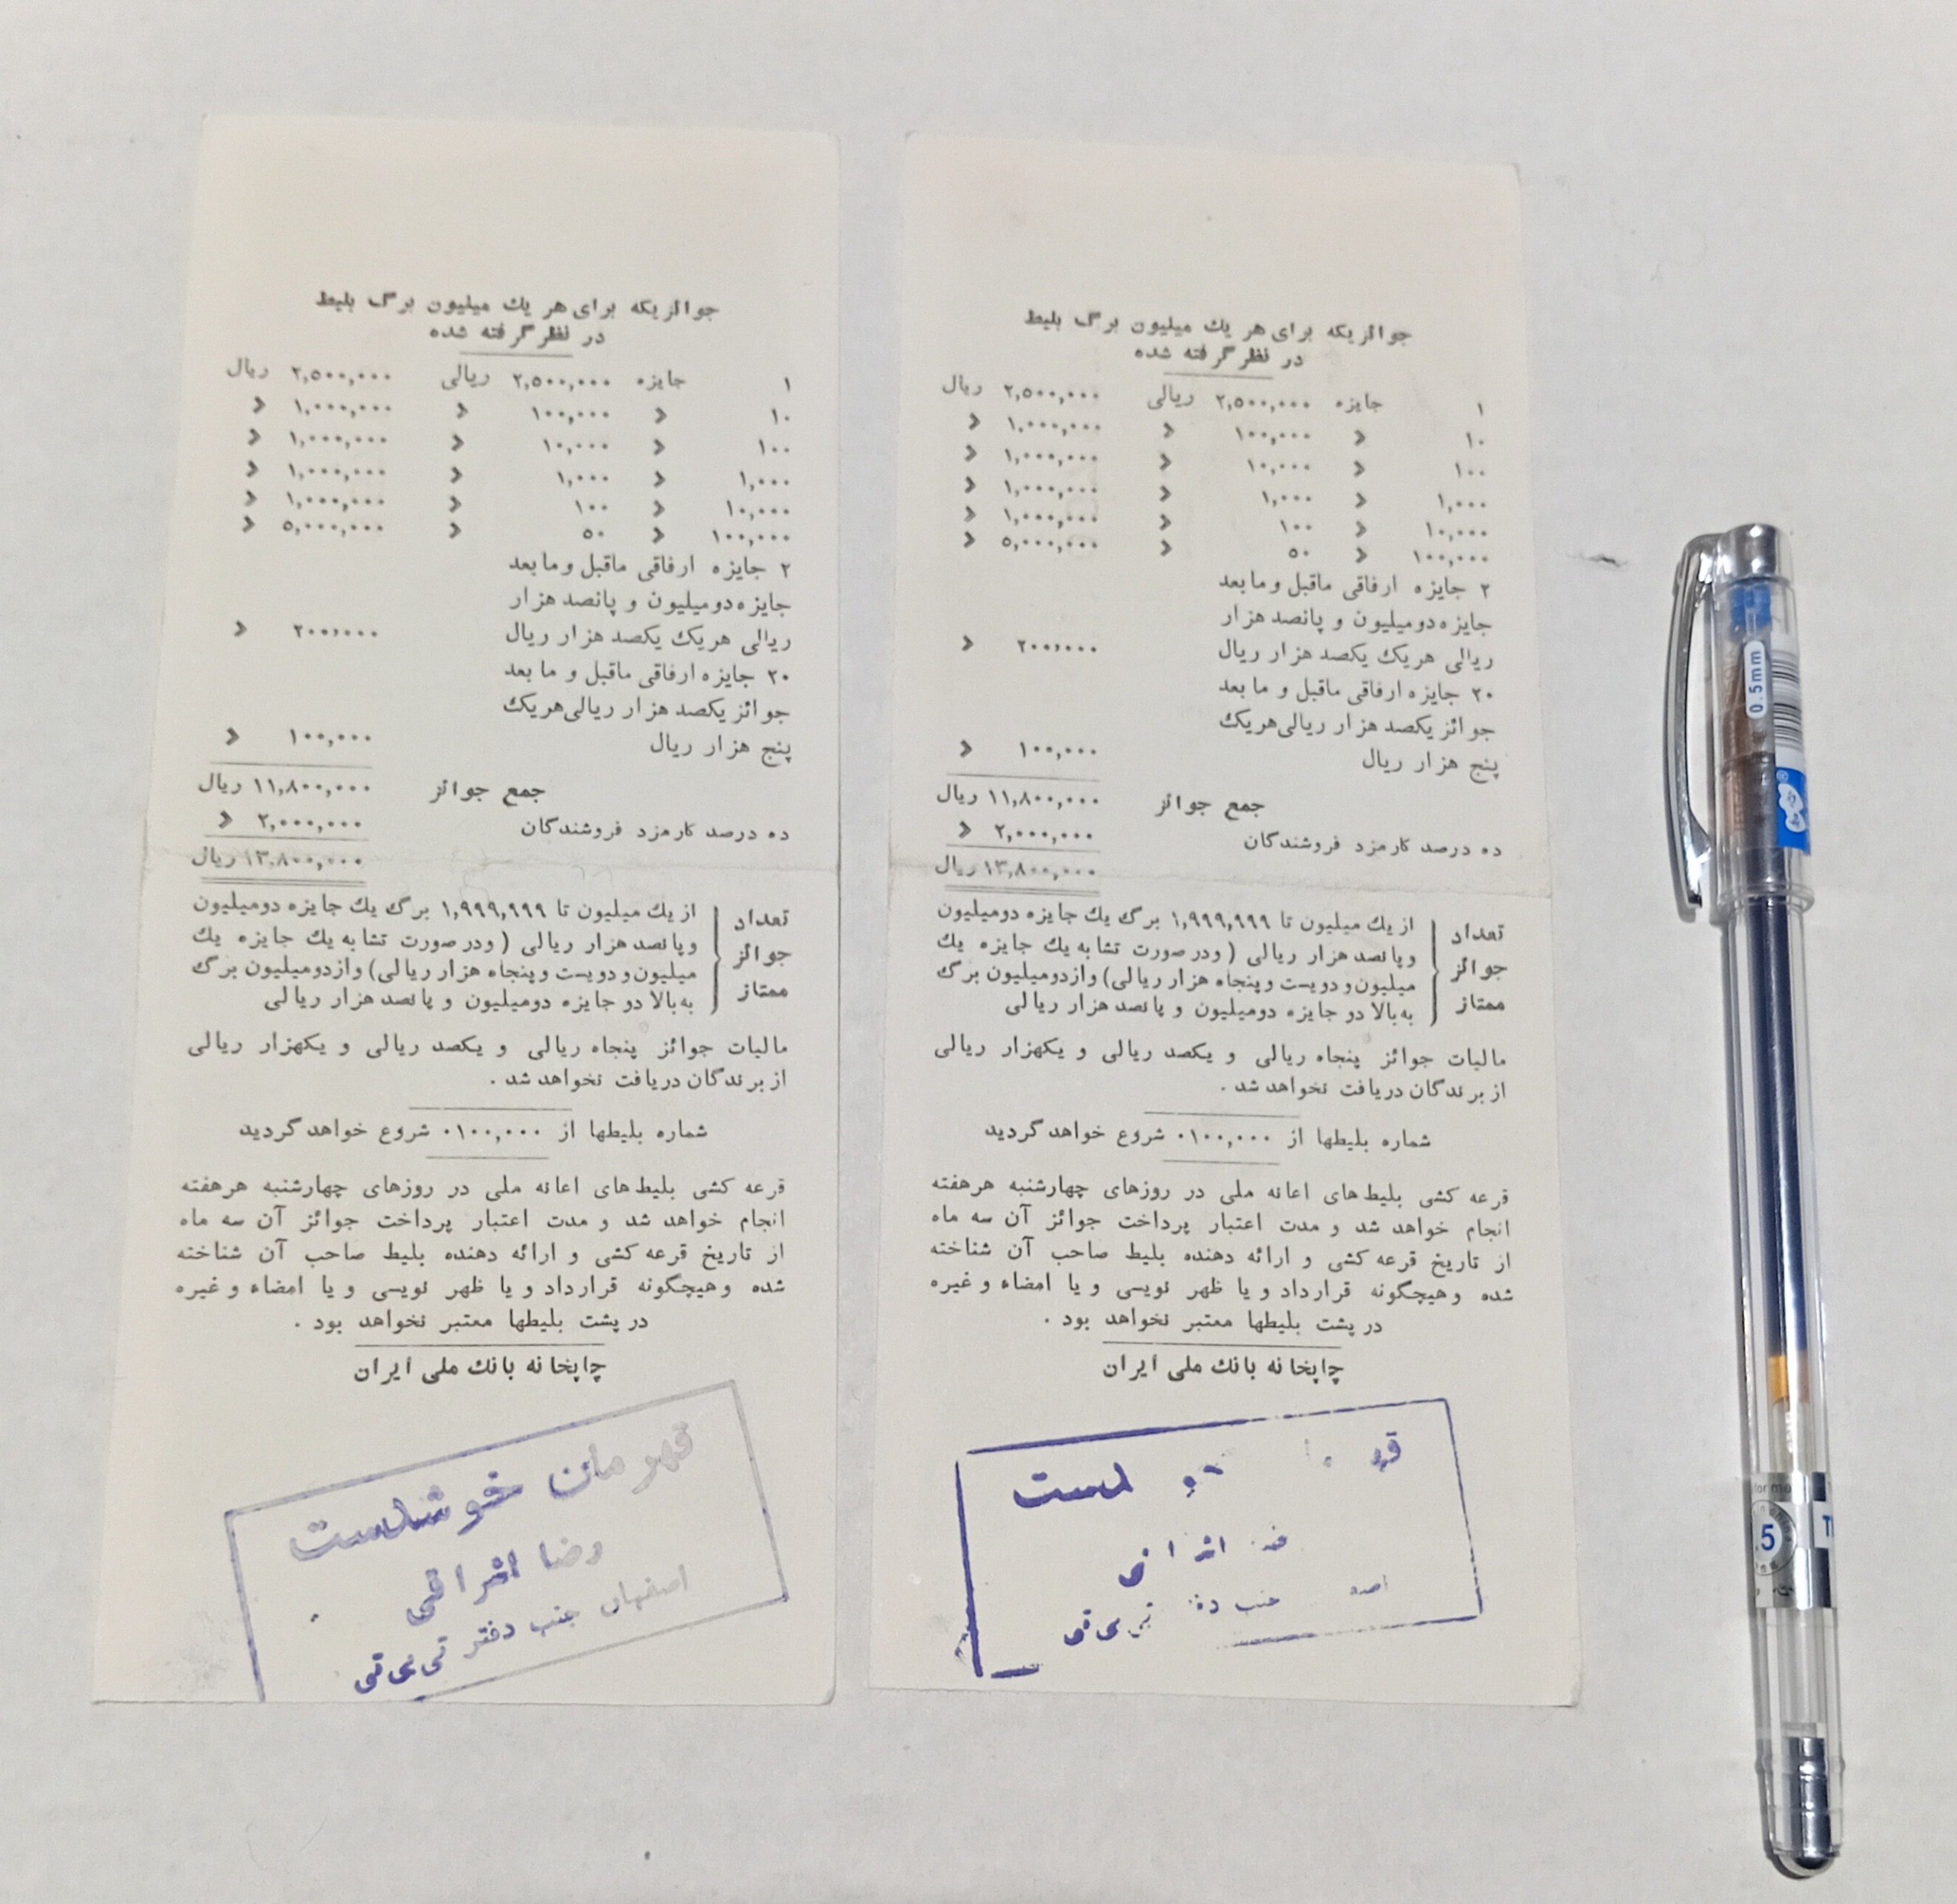 جوائزیکه برای هر یك میلیون برگ بلیط
در نظر گرفته شده
۱ جایزه ۲,۵۰۰,۰۰۰ ریالی ۲,۵۰۰,۰۰۰ ریال
۱۰ » ۱۰۰,۰۰۰ » ۱,۰۰۰,۰۰۰ »
۱۰۰ » ۱۰,۰۰۰ » ۱,۰۰۰,۰۰۰ »
۱,۰۰۰ » ۱,۰۰۰ » ۱,۰۰۰,۰۰۰ »
۱۰,۰۰۰ » ۱۰۰ » ۱,۰۰۰,۰۰۰ »
۱۰۰,۰۰۰ » ۵۰ » ۵,۰۰۰,۰۰۰ »
۲ جایزه ارفاقی ماقبل و مابعد
جایزه دومیلیون و پانصد هزار
ریالی هریک یکصد هزار ریال ۲۰۰,۰۰۰ »
۲۰ جایزه ارفاقی ماقبل و ما بعد
جوائز یکصد هزار ریالی هریک
پنج هزار ریال ۱۰۰,۰۰۰ »
جمع جوائز ۱۱,۸۰۰,۰۰۰ ریال
ده درصد کارمزد فروشندگان ۲,۰۰۰,۰۰۰ »
۱۳,۸۰۰,۰۰۰ ریال
تعداد جوائز ممتاز
از یك میلیون تا ۱,۹۹۹,۹۹۹ برگ یك جایزه دومیلیون
و پانصد هزار ریالی ( و در صورت تشابه یك جایزه یك
میلیون و دویست و پنجاه هزار ریالی) و از دومیلیون برگ
به بالا دو جایزه دومیلیون و پانصد هزار ریالی
مالیات جوائز پنجاه ریالی و یکصد ریالی و یکهزار ریالی
از برندگان دریافت نخواهد شد .
شماره بلیطها از ۰۱۰۰,۰۰۰ شروع خواهد گردید
قرعه کشی بلیط های اعانه ملی در روزهای چهارشنبه هرهفته
انجام خواهد شد و مدت اعتبار پرداخت جوائز آن سه ماه
از تاریخ قرعه کشی و ارائه دهنده بلیط صاحب آن شناخته
شده و هیچگونه قرارداد و یا ظهر نویسی و یا امضاء و غیره
در پشت بلیطها معتبر نخواهد بود .
چاپخانه بانك ملی ایران
قهرمان خوشدست
رضا اشراقی
اصفهان جنب دفتر تی بی تی
جوائزیکه برای هر یك میلیون برگ بلیط
در نظر گرفته شده
۱ جایزه ۲,۵۰۰,۰۰۰ ریالی ۲,۵۰۰,۰۰۰ ریال
۱۰ » ۱۰۰,۰۰۰ » ۱,۰۰۰,۰۰۰ »
۱۰۰ » ۱۰,۰۰۰ » ۱,۰۰۰,۰۰۰ »
۱,۰۰۰ » ۱,۰۰۰ » ۱,۰۰۰,۰۰۰ »
۱۰,۰۰۰ » ۱۰۰ » ۱,۰۰۰,۰۰۰ »
۱۰۰,۰۰۰ » ۵۰ » ۵,۰۰۰,۰۰۰ »
۲ جایزه ارفاقی ماقبل و مابعد
جایزه دومیلیون و پانصد هزار
ریالی هریک یکصد هزار ریال ۲۰۰,۰۰۰ »
۲۰ جایزه ارفاقی ماقبل و ما بعد
جوائز یکصد هزار ریالی هریک
پنج هزار ریال ۱۰۰,۰۰۰ »
جمع جوائز ۱۱,۸۰۰,۰۰۰ ریال
ده درصد کارمزد فروشندگان ۲,۰۰۰,۰۰۰ »
۱۳,۸۰۰,۰۰۰ ریال
تعداد جوائز ممتاز
از یك میلیون تا ۱,۹۹۹,۹۹۹ برگ یك جایزه دومیلیون
و پانصد هزار ریالی ( و در صورت تشابه یك جایزه یك
میلیون و دویست و پنجاه هزار ریالی) و از دومیلیون برگ
به بالا دو جایزه دومیلیون و پانصد هزار ریالی
مالیات جوائز پنجاه ریالی و یکصد ریالی و یکهزار ریالی
از برندگان دریافت نخواهد شد .
شماره بلیطها از ۰۱۰۰,۰۰۰ شروع خواهد گردید
قرعه کشی بلیط های اعانه ملی در روزهای چهارشنبه هرهفته
انجام خواهد شد و مدت اعتبار پرداخت جوائز آن سه ماه
از تاریخ قرعه کشی و ارائه دهنده بلیط صاحب آن شناخته
شده و هیچگونه قرارداد و یا ظهر نویسی و یا امضاء و غیره
در پشت بلیطها معتبر نخواهد بود .
چاپخانه بانك ملی ایران
جنب
تی بی تی
0.5mm
5